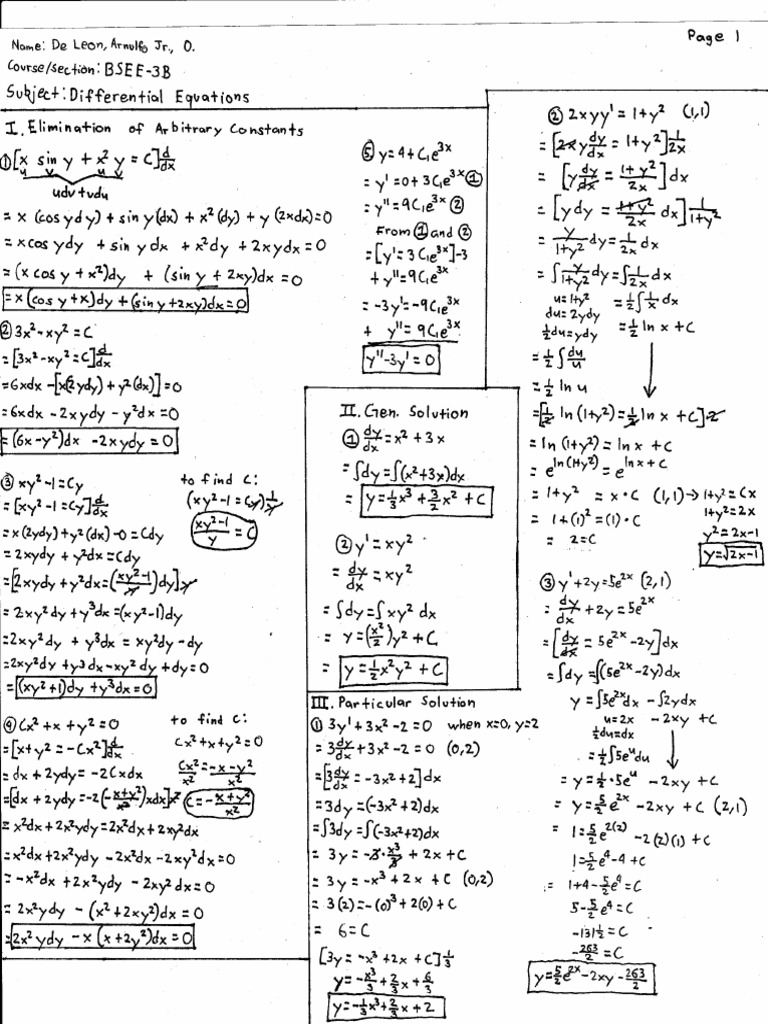 Page 1
Name: De Leon, Arnulfo Jr., O.
Course/section: BSEE-3B
Subject: Differential Equations
I. Elimination of Arbitrary Constants
① [x sin y + x² y = C] d/dx
u v u v
udv+vdu
= x (cos y dy) + sin y (dx) + x² (dy) + y (2xdx) = 0
= x cos y dy + sin y dx + x²dy + 2xydx = 0
= (x cos y + x²)dy + (sin y + 2xy)dx = 0
= x(cos y + x)dy + (sin y + 2xy)dx = 0
② 3x² - xy² = C
= [3x² - xy² = C] d/dx
= 6xdx - [x(2ydy) + y²(dx)] = 0
= 6xdx - 2xydy - y²dx = 0
= (6x - y²)dx - 2xydy = 0
③ xy² - 1 = Cy
= [xy² - 1 = Cy] d/dx
= x(2ydy) + y²(dx) - 0 = Cdy
= 2xydy + y²dx = Cdy
= [2xydy + y²dx = (xy²-1/y)dy] y
= 2xy²dy + y³dx = (xy²-1)dy
= 2xy²dy + y³dx = xy²dy - dy
= 2xy²dy + y³dx - xy²dy + dy = 0
= (xy²+1)dy + y³dx = 0
to find C:
(xy² - 1 = Cy) 1/y
xy²-1/y = C
④ Cx² + x + y² = 0
= [x + y² = -Cx²] d/dx
= dx + 2ydy = -2Cxdx
= [dx + 2ydy = -2(-x+y²/x²)xdx] x²
= x²dx + 2x²ydy = 2x²dx + 2xy²dx
= x²dx + 2x²ydy - 2x²dx - 2xy²dx = 0
= -x²dx + 2x²ydy - 2xy²dx = 0
= 2x²ydy - (x² + 2xy²)dx = 0
= 2x²ydy - x(x + 2y²)dx = 0
to find C:
Cx² + x + y² = 0
Cx²/x² = -x - y²/x²
C = -x+y²/x²
⑤ y = 4 + C₁e³ˣ
= y' = 0 + 3C₁e³ˣ ①
= y'' = 9C₁e³ˣ ②
From ① and ②
= [y' = 3C₁e³ˣ] -3
+ y'' = 9C₁e³ˣ
= -3y' = -9C₁e³ˣ
+ y'' = 9C₁e³ˣ
y'' - 3y' = 0
II. Gen. Solution
① dy/dx = x² + 3x
= ∫dy = ∫(x² + 3x)dx
= y = 1/3 x³ + 3/2 x² + C
② y' = xy²
= dy/dx = xy²
= ∫dy = ∫xy² dx
= y = (x²/2)y² + C
= y = 1/2 x²y² + C
III. Particular Solution
① 3y' + 3x² - 2 = 0 when x=0, y=2
= 3dy/dx + 3x² - 2 = 0 (0,2)
= [3dy/dx = -3x² + 2]dx
= 3dy = (-3x² + 2)dx
= ∫3dy = ∫(-3x² + 2)dx
= 3y = -3·x³/3 + 2x + C
= 3y = -x³ + 2x + C (0,2)
= 3(2) = -(0)³ + 2(0) + C
= 6 = C
[3y = -x³ + 2x + C] 1/3
y = -x³/3 + 2/3 x + 6/3
y = -1/3 x³ + 2/3 x + 2
② 2xyy' = 1 + y² (1,1)
= [2xy dy/dx = 1 + y²] 1/2x
= [y dy/dx = 1+y²/2x] dx
= [ydy = 1+y²/2x dx] 1/1+y²
= y/1+y² dy = 1/2x dx
= ∫ y/1+y² dy = ∫ 1/2x dx
u = 1+y² = 1/2 ∫ 1/x dx
du = 2ydy
1/2 du = ydy = 1/2 ln x + C
= 1/2 ∫ du/u
= 1/2 ln u
= [1/2 ln (1+y²) = 1/2 ln x + C] 2
= ln (1+y²) = ln x + C
= e^ln(1+y²) = e^ln x + C
= 1 + y² = x·C (1,1) → 1+y² = Cx
= 1 + (1)² = (1)·C 1+y² = 2x
= 2 = C y² = 2x-1
y = √2x-1
③ y' + 2y = 5e²ˣ (2,1)
= dy/dx + 2y = 5e²ˣ
= [dy/dx = 5e²ˣ - 2y]dx
= ∫dy = ∫(5e²ˣ - 2y)dx
y = ∫5e²ˣdx - ∫2ydx
u = 2x - 2xy + C
1/2 du = dx
= 1/2 ∫5eᵘdu
= y = 1/2 · 5eᵘ - 2xy + C
= y = 5/2 e²ˣ - 2xy + C (2,1)
= 1 = 5/2 e²⁽²⁾ - 2(2)(1) + C
1 = 5/2 e⁴ - 4 + C
= 1 + 4 - 5/2 e⁴ = C
5 - 5/2 e⁴ = C
-131 1/2 = C
-263/2 = C
y = 5/2 e²ˣ - 2xy - 263/2